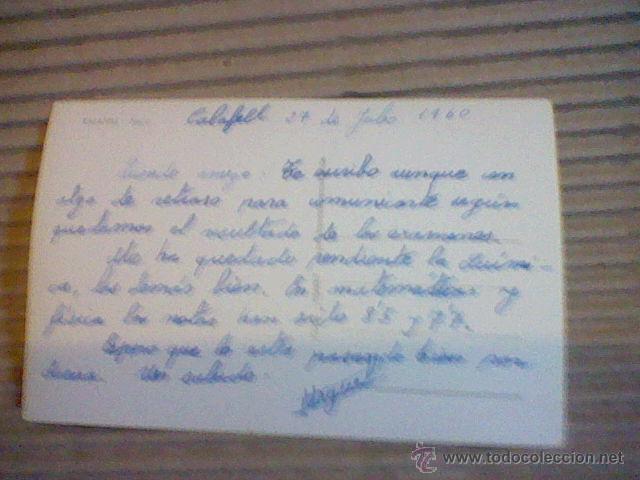 Calafell 27 de Julio 1960
Querido amigo: Te escribo aunque con
algo de retraso para comunicarte según
quedamos el resultado de los exámenes.
Me ha quedado pendiente la Quími-
ca, los demás bien. En matemáticas y
física las notas son 8'5 y 7'7.
Espero que lo estés pasando bien por
Un saludo.
Miguel
www.todocoleccion.net